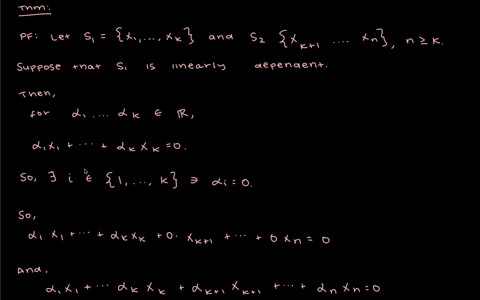 Thm:
PF: Let S₁ = {x₁,...,xₖ} and S₂ {xₖ₊₁ .... xₙ}, n ≥ k.
Suppose that S₁ is linearly dependent.
Then,
for α₁ .... αₖ ∈ ℝ,
α₁x₁ + ... + αₖxₖ = 0.
So, ∃ i ∈ {1,...,k} ∋ αᵢ = 0.
So,
α₁x₁ + ... + αₖxₖ + 0· xₖ₊₁ + ... + 0xₙ = 0
And,
α₁x₁ + ... αₖxₖ + αₖ₊₁xₖ₊₁ + ... + αₙxₙ = 0